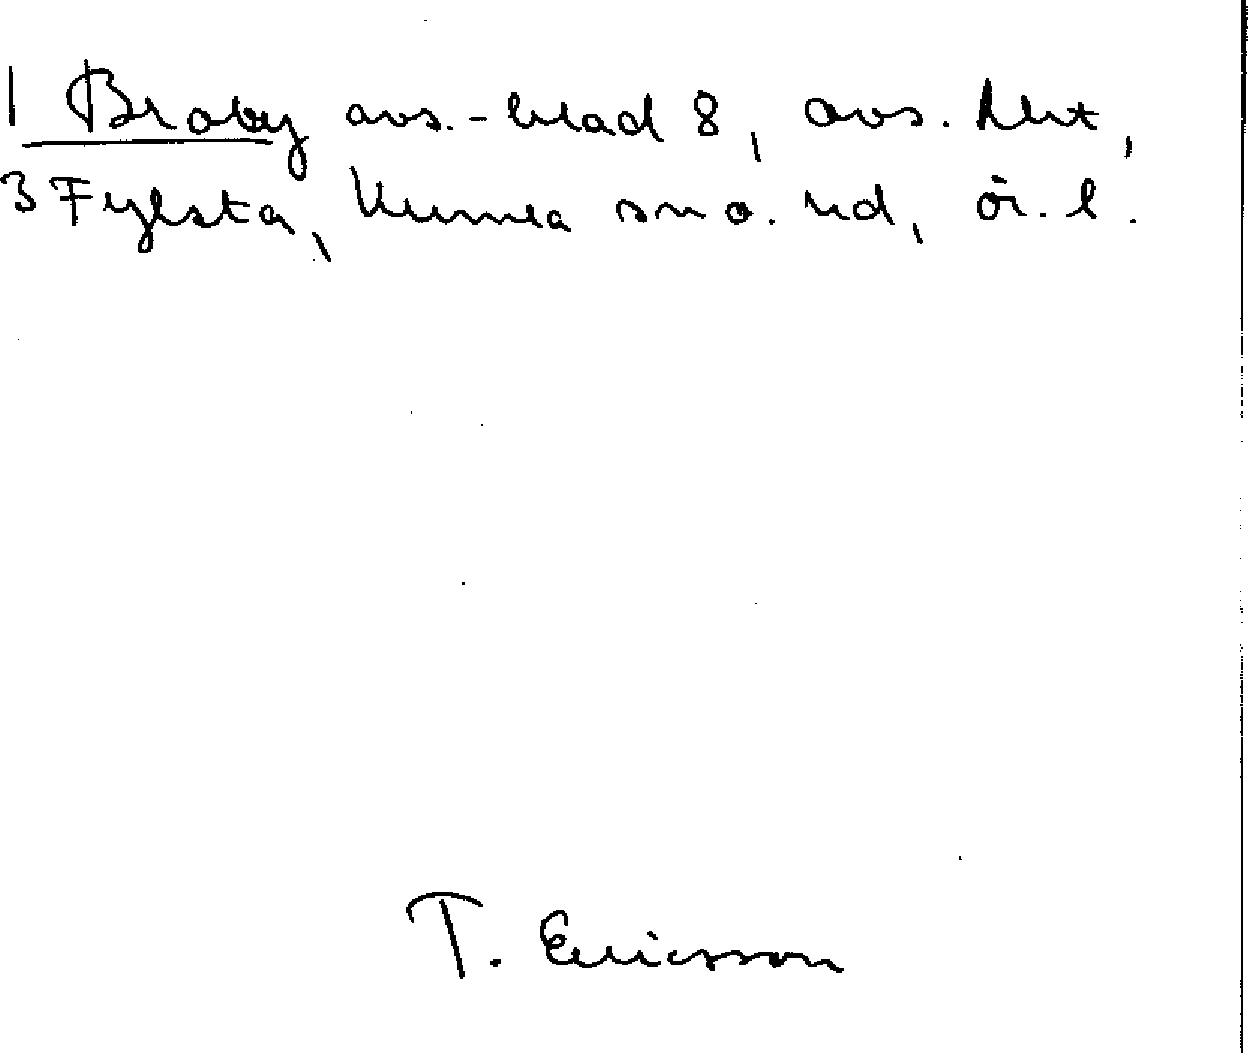 1 Broby avs.-blad 8, avs. Ullvt,
3 Fylsta, Kumla sn o. hd, ör. l.
T. Ericsson